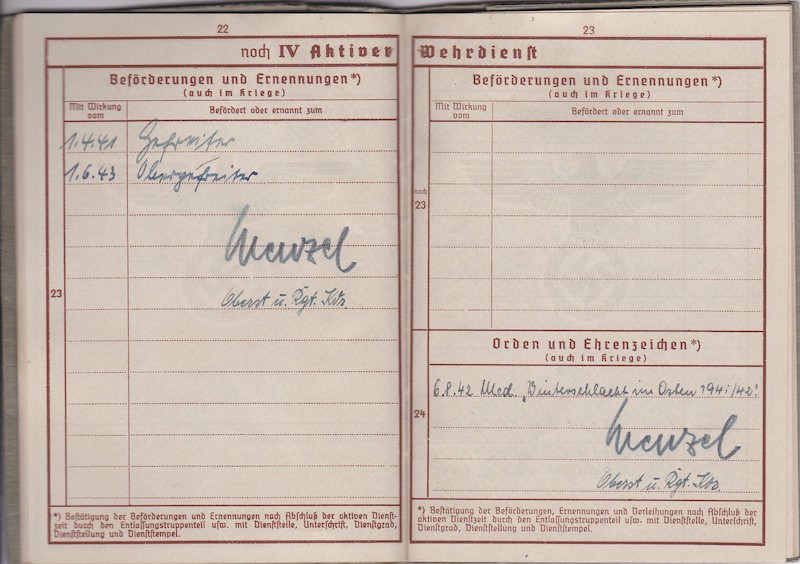 22
noch IV Aktiver
Beförderungen und Ernennungen*)
(auch im Kriege)
Mit Wirkung vom
Befördert oder ernannt zum
1.4.41 Gefreiter
1.6.43 Obergefreiter
Menzel
23
Oberst u. Rgt. Kdr.
*) Bestätigung der Beförderungen und Ernennungen nach Abschluß der aktiven Dienst-
zeit durch den Entlassungstruppenteil usw. mit Dienststelle, Unterschrift, Dienstgrad,
Dienststellung und Dienststempel.
23
Wehrdienst
Beförderungen und Ernennungen*)
(auch im Kriege)
Mit Wirkung vom
Befördert oder ernannt zum
noch
23
Orden und Ehrenzeichen*)
(auch im Kriege)
6.8.42 Med. „Winterschlacht im Osten 1941/42"
24
Menzel
Oberst u. Rgt. Kdr.
*) Bestätigung der Beförderungen, Ernennungen und Verleihungen nach Abschluß der
aktiven Dienstzeit durch den Entlassungstruppenteil usw. mit Dienststelle, Unterschrift,
Dienstgrad, Dienststellung und Dienststempel.